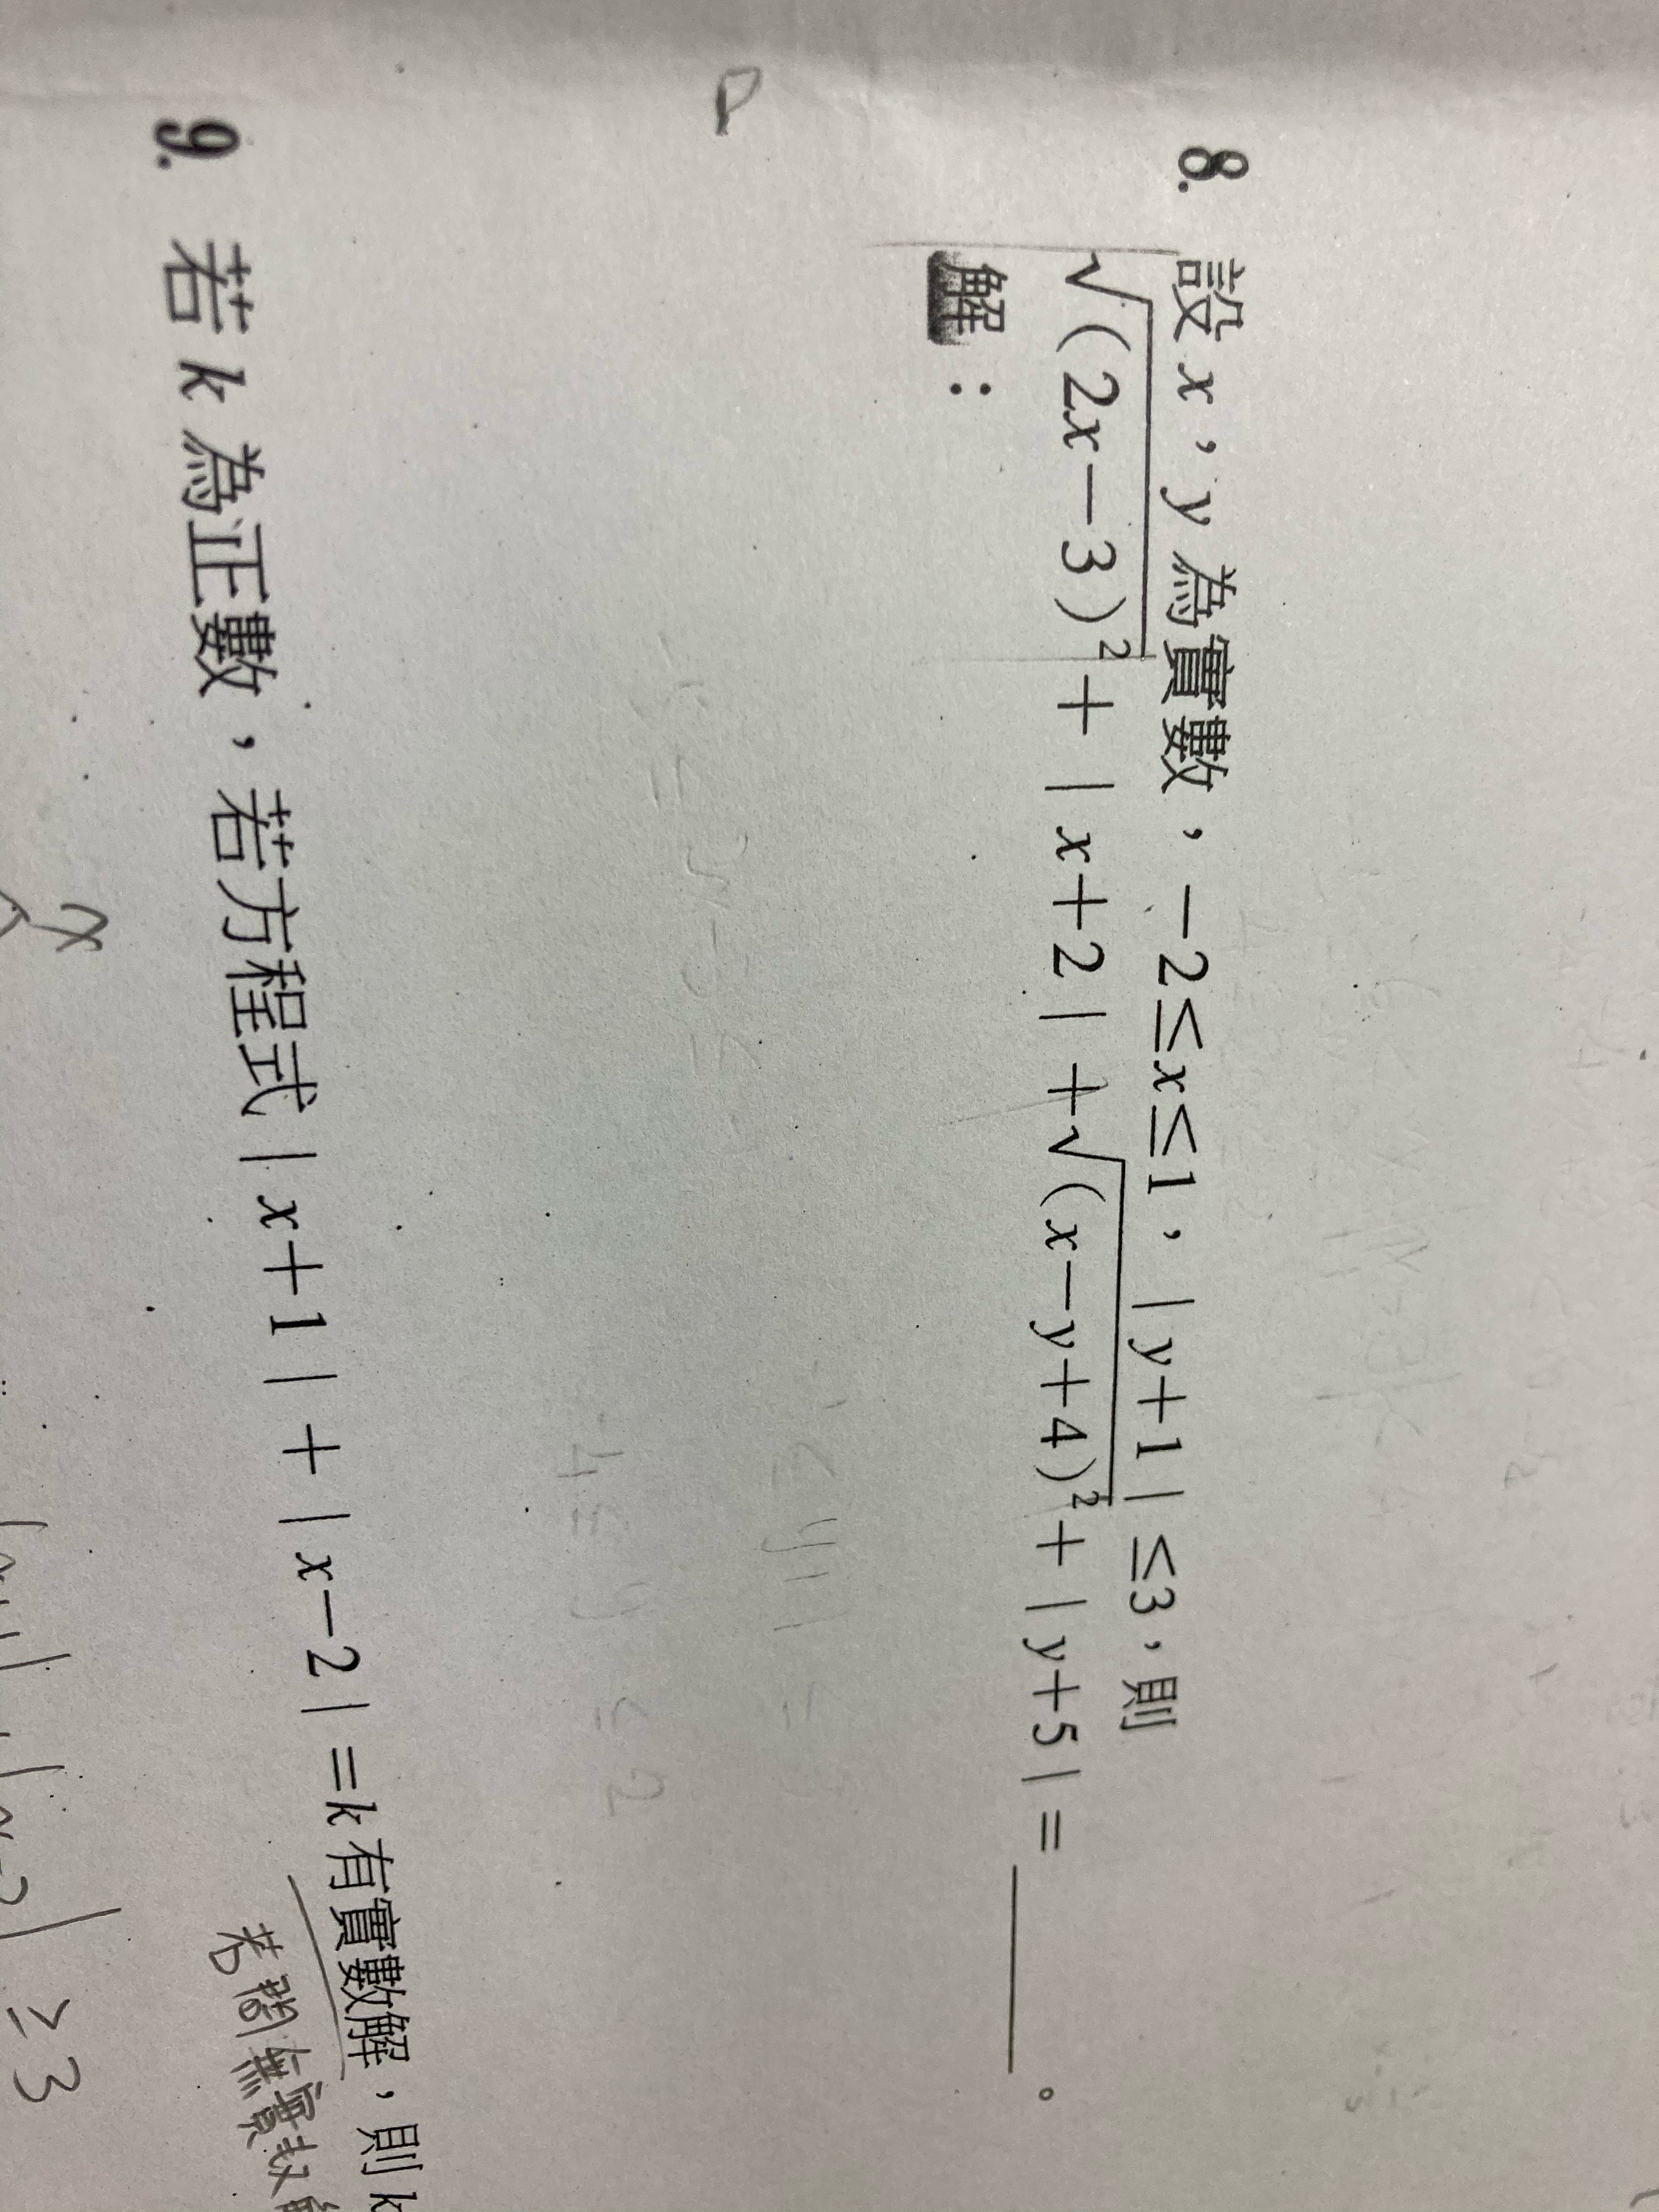 8. 設 x，y 為實數，－2≤x≤1，|y＋1|≤3，則
√(2x－3)²＋|x＋2|＋√(x－y＋4)²＋|y＋5|＝＿＿＿＿。
解：
9. 若 k 為正數，若方程式|x＋1|＋|x－2|＝k有實數解，則k
若問無實數
-4≤y≤2
x
≥3